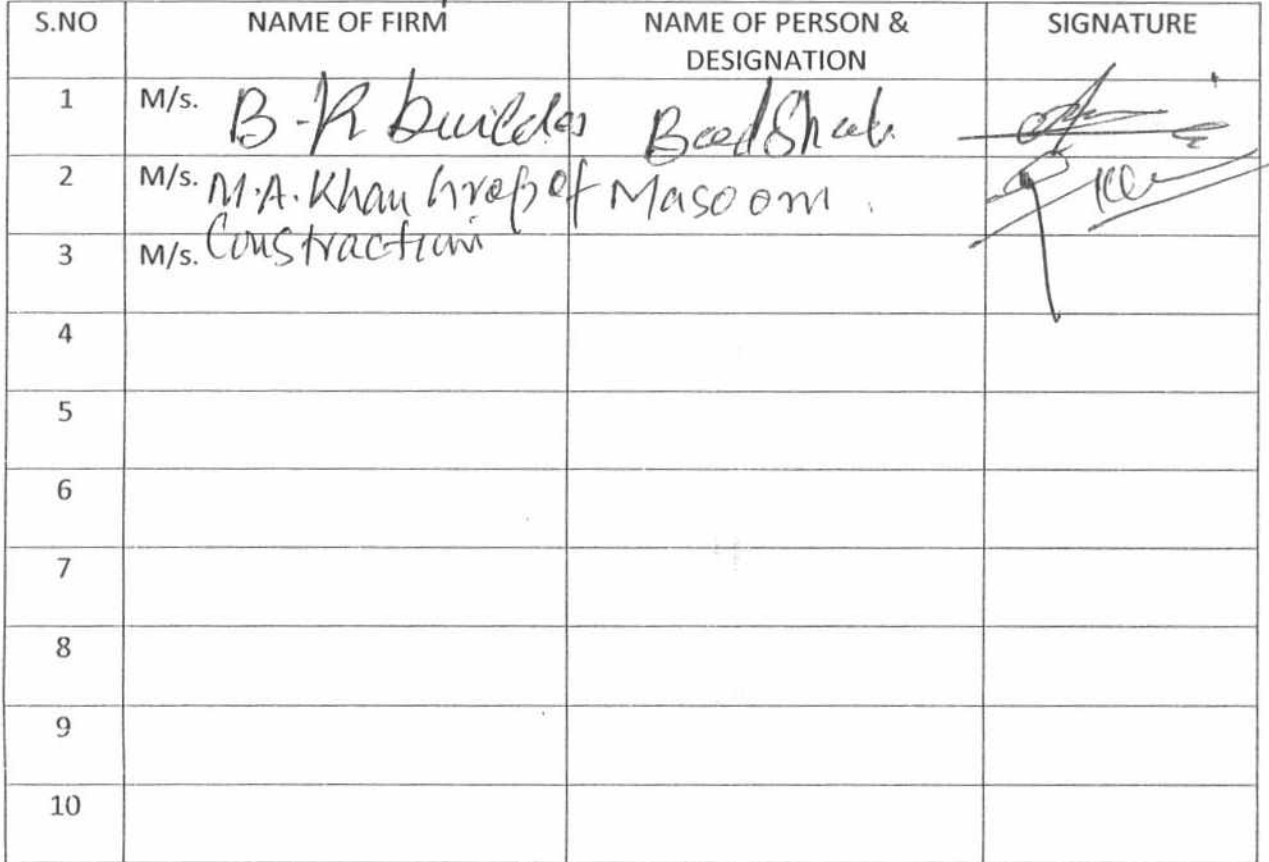 S.NO NAME OF FIRM NAME OF PERSON & SIGNATURE
DESIGNATION
1 M/s. B-R builders BaadShah
2 M/s. M.A. Khan Grop of Masoom.
3 M/s. Constraction
4
5
6
7
8
9
10